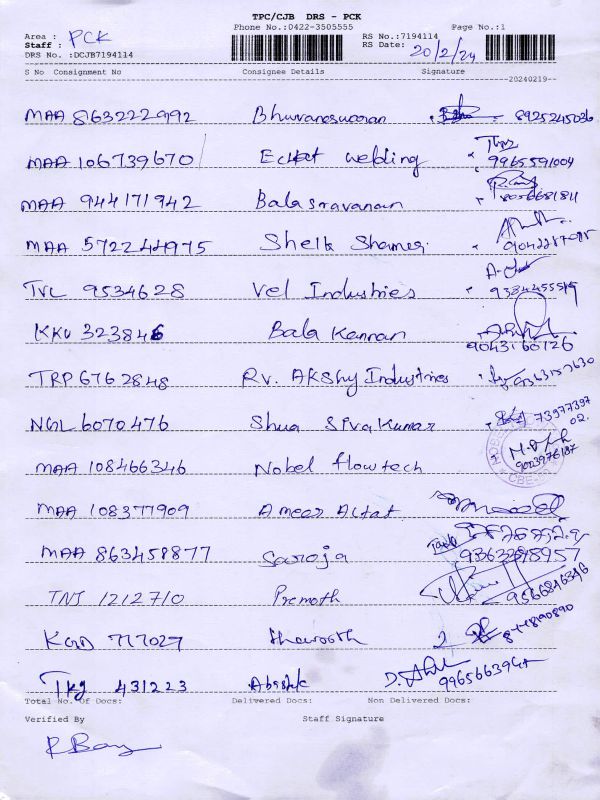 TPC/CJB DRS - PCK
Phone No.:0422-3505555
Page No.:1
Area : PCK
Staff :
RS No.:7194114
RS Date: 20/2/24
DRS No. :DCJB7194114
S No Consignment No Consignee Details Signature
20240219
MAA 8632222992 Bhuvaneswaran 8925245036
MAA 106739670 Echat welding 9965591004
MAA 944171942 Balasravanan
MAA 572244975 Sheik Shameer
TVL 9534628 Vel Industries 9384455519
KKU 323846 Bala Kannan 9043160726
TRP 6762848 RV. AKshy Industries
NGL 6070476 Shua Siva Kumar 73977397
02.
MAA 108466346 Nobel flowtech 9003976187
MAA 108377909 Ameer
MAA 863458877 Saroja 9363298957
TNJ 1212710 Pramoth 9566846346
KGD 717027
TKJ 431223 9965663941
Total No. Of Docs: Delivered Docs: Non Delivered Docs:
Verified By Staff Signature